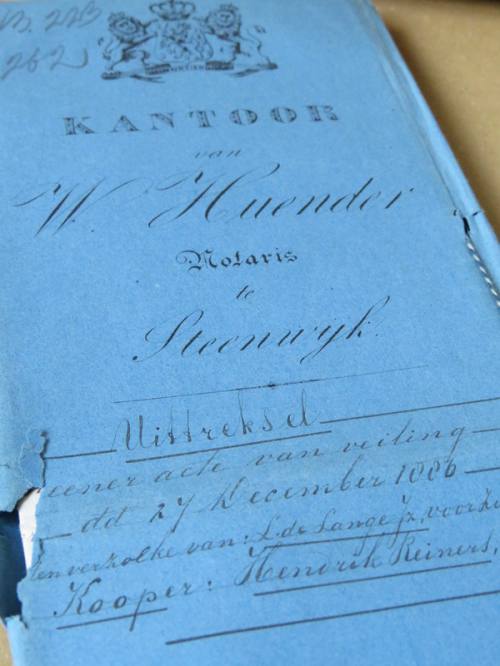 B. 223
262
KANTOOR
van
W. Huender
Notaris
te
Steenwyk.
Uittreksel
eener acte van veiling
dd 27 December 1886
ten verzoeke van: L. de Lange Jz,
Kooper: Hendrik Reiners,